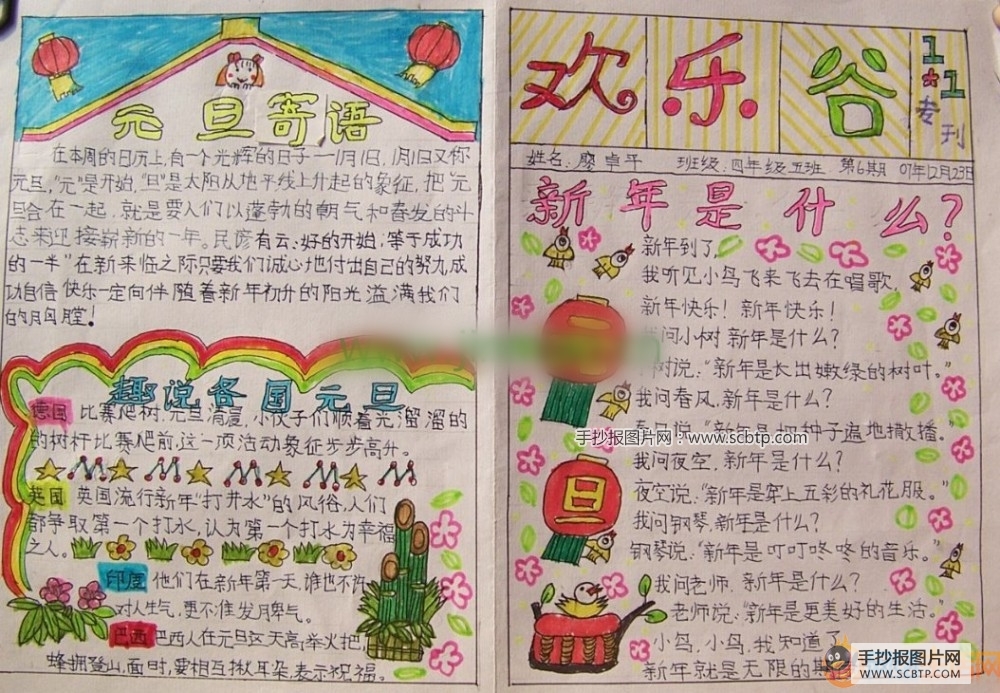 元旦寄语
在本周的日历上,有一个光辉的日子——1月1日,1月1日又称
元旦,"元"是开始,"旦"是太阳从地平线上升起的象征,把"元
旦合在一起,就是要人们以蓬勃的朝气和奋发的斗
志来迎接崭新的一年。民谚有云:好的开始,等于成功
的一半"在新来临之际只要我们诚心地付出自己的努力,成
功自信快乐一定向伴随着新年初升的阳光溢满我们
的胸膛!
趣说各国元旦
德国 比赛爬树,元旦清晨,小伙子们顺着光溜溜的
的树杆比赛爬前,这一项活动象征步步高升。
英国 英国流行新年"打井水"的风俗,人们
都争取第一个打水,认为第一个打水为幸福
之人。
印度 他们在新年第一天,谁也不许
对人生气,更不准发脾气。
巴西 巴西人在元旦这天高举火把,
蜂拥登山,面时,要相互揪耳朵,表示祝福。
欢乐谷
1★1
专刊
姓名:廖卓平 班级:四年级五班 第6期 07年12月23日
新年是什么?
新年到了,
我听见小鸟飞来飞去在唱歌,
新年快乐!新年快乐!
我问小树,新年是什么?
树说:"新年是长出嫩绿的树叶。"
我问春风,新年是什么?
说:"新年是把种子遍地撒播。"
手抄报图片网:www.scbtp.com
我问夜空,新年是什么?
夜空说:"新年是穿上五彩的礼花服。"
我问钢琴,新年是什么?
钢琴说:"新年是叮叮咚咚的音乐。"
我问老师,新年是什么?
老师说:"新年是更美好的生活。"
小鸟,小鸟,我知道了,
新年就是无限的
元
旦
手抄报图片网
WWW.SCBTP.COM